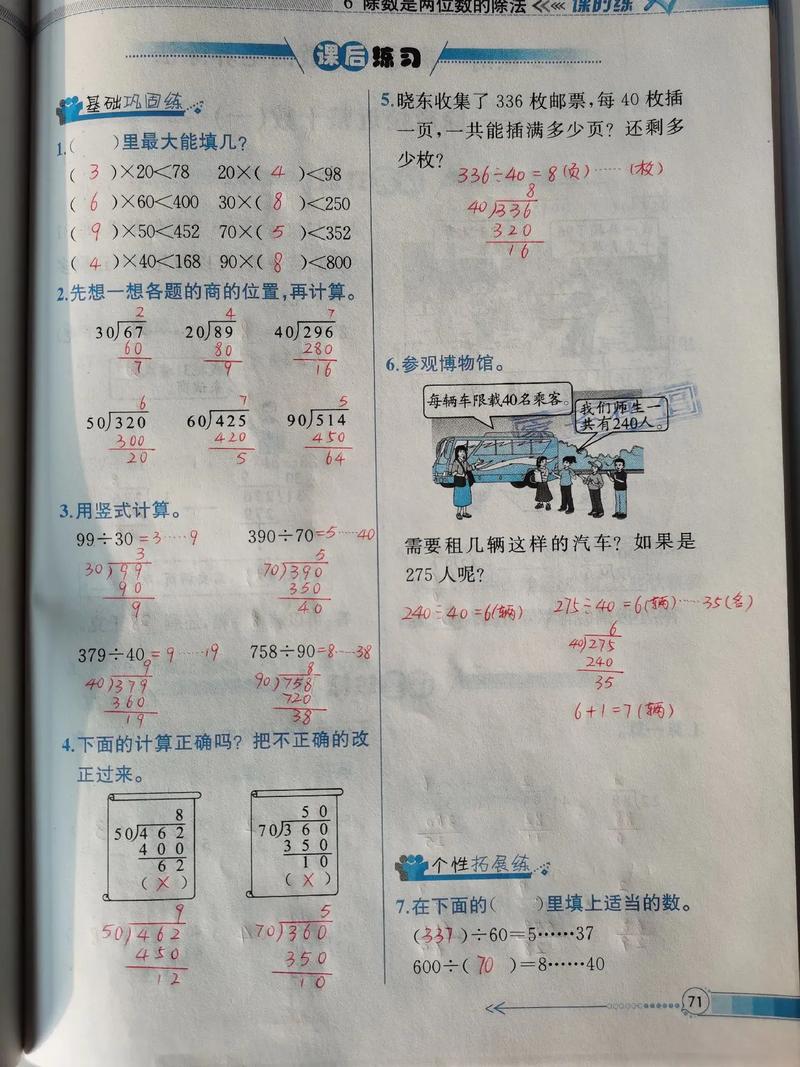 6 除数是两位数的除法 课时练
课后练习
基础巩固练
1.( )里最大能填几?
( 3 )×20<78 20×( 4 )<98
( 6 )×60<400 30×( 8 )<250
( 9 )×50<452 70×( 5 )<352
( 4 )×40<168 90×( 8 )<800
2.先想一想各题的商的位置,再计算。
2 4 7
30)67 20)89 40)296
60 80 280
7 9 16
6 7 5
50)320 60)425 90)514
300 420 450
20 5 64
3.用竖式计算。
99÷30=3……9 390÷70=5……40
3 5
30)99 70)390
90 350
9 40
379÷40=9……19 758÷90=8…38
9 8
40)379 90)758
360 720
19 38
4.下面的计算正确吗? 把不正确的改
正过来。
8 50
50)462 70)360
400 350
62 10
( × ) ( × )
9 5
50)462 70)360
450 350
12 10
5.晓东收集了 336 枚邮票,每 40 枚插
一页,一共能插满多少页? 还剩多
少枚?
336÷40=8(页)……(枚)
8
40)336
320
16
6.参观博物馆。
每辆车限载40名乘客。
我们师生一
共有240人。
需要租几辆这样的汽车? 如果是
275 人呢?
240÷40=6(辆) 275÷40=6(辆)……35(名)
6
40)275
240
35
6+1=7(辆)
个性拓展练
7.在下面的( )里填上适当的数。
(337)÷60=5……37
600÷( 70 )=8……40
71